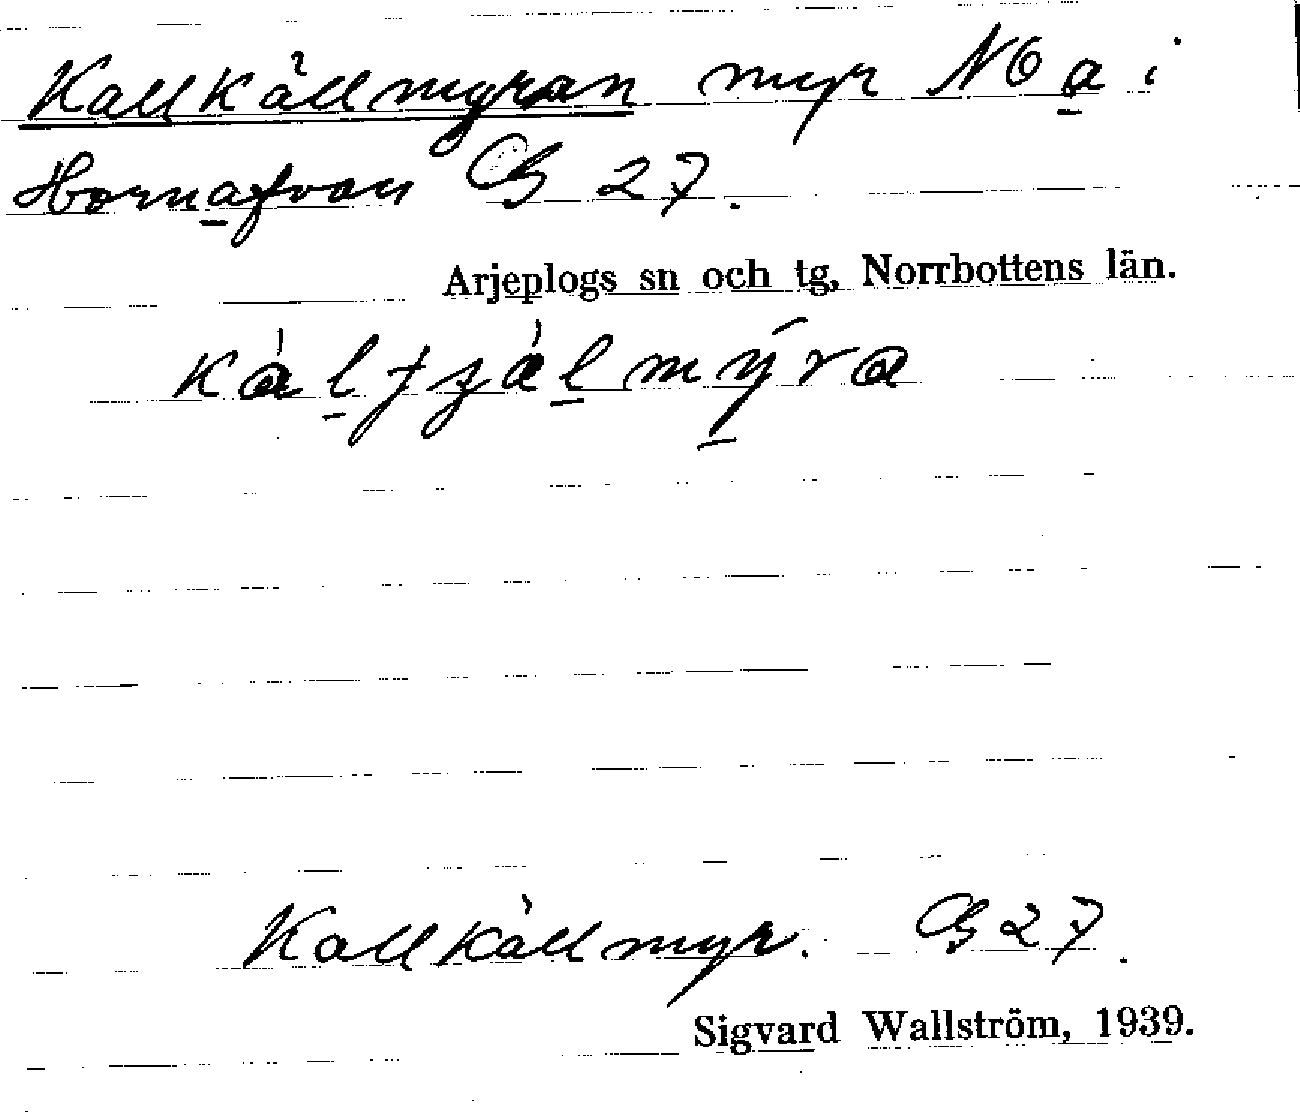 Kallkällmyran myr NO a i
Hornafvan G 27.
Arjeplogs sn och tg, Norrbottens län.
Kallkällmyr. G 27.
Sigvard Wallström, 1939.